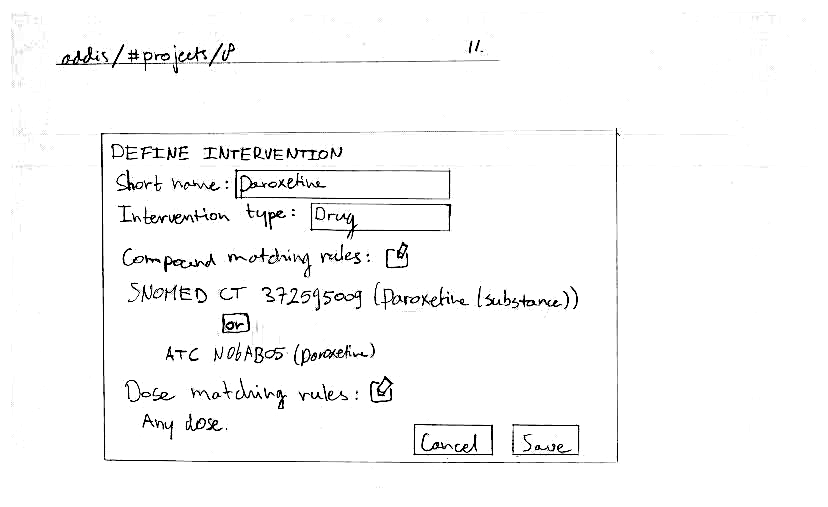 addis/#projects/P 11.
DEFINE INTERVENTION
Short name: Paroxetine
Intervention type: Drug
Compound matching rules:
SNOMED CT 372595009 (Paroxetine (substance))
or
ATC N06AB05 (Paroxetine)
Dose matching rules:
Any dose.
Cancel Save